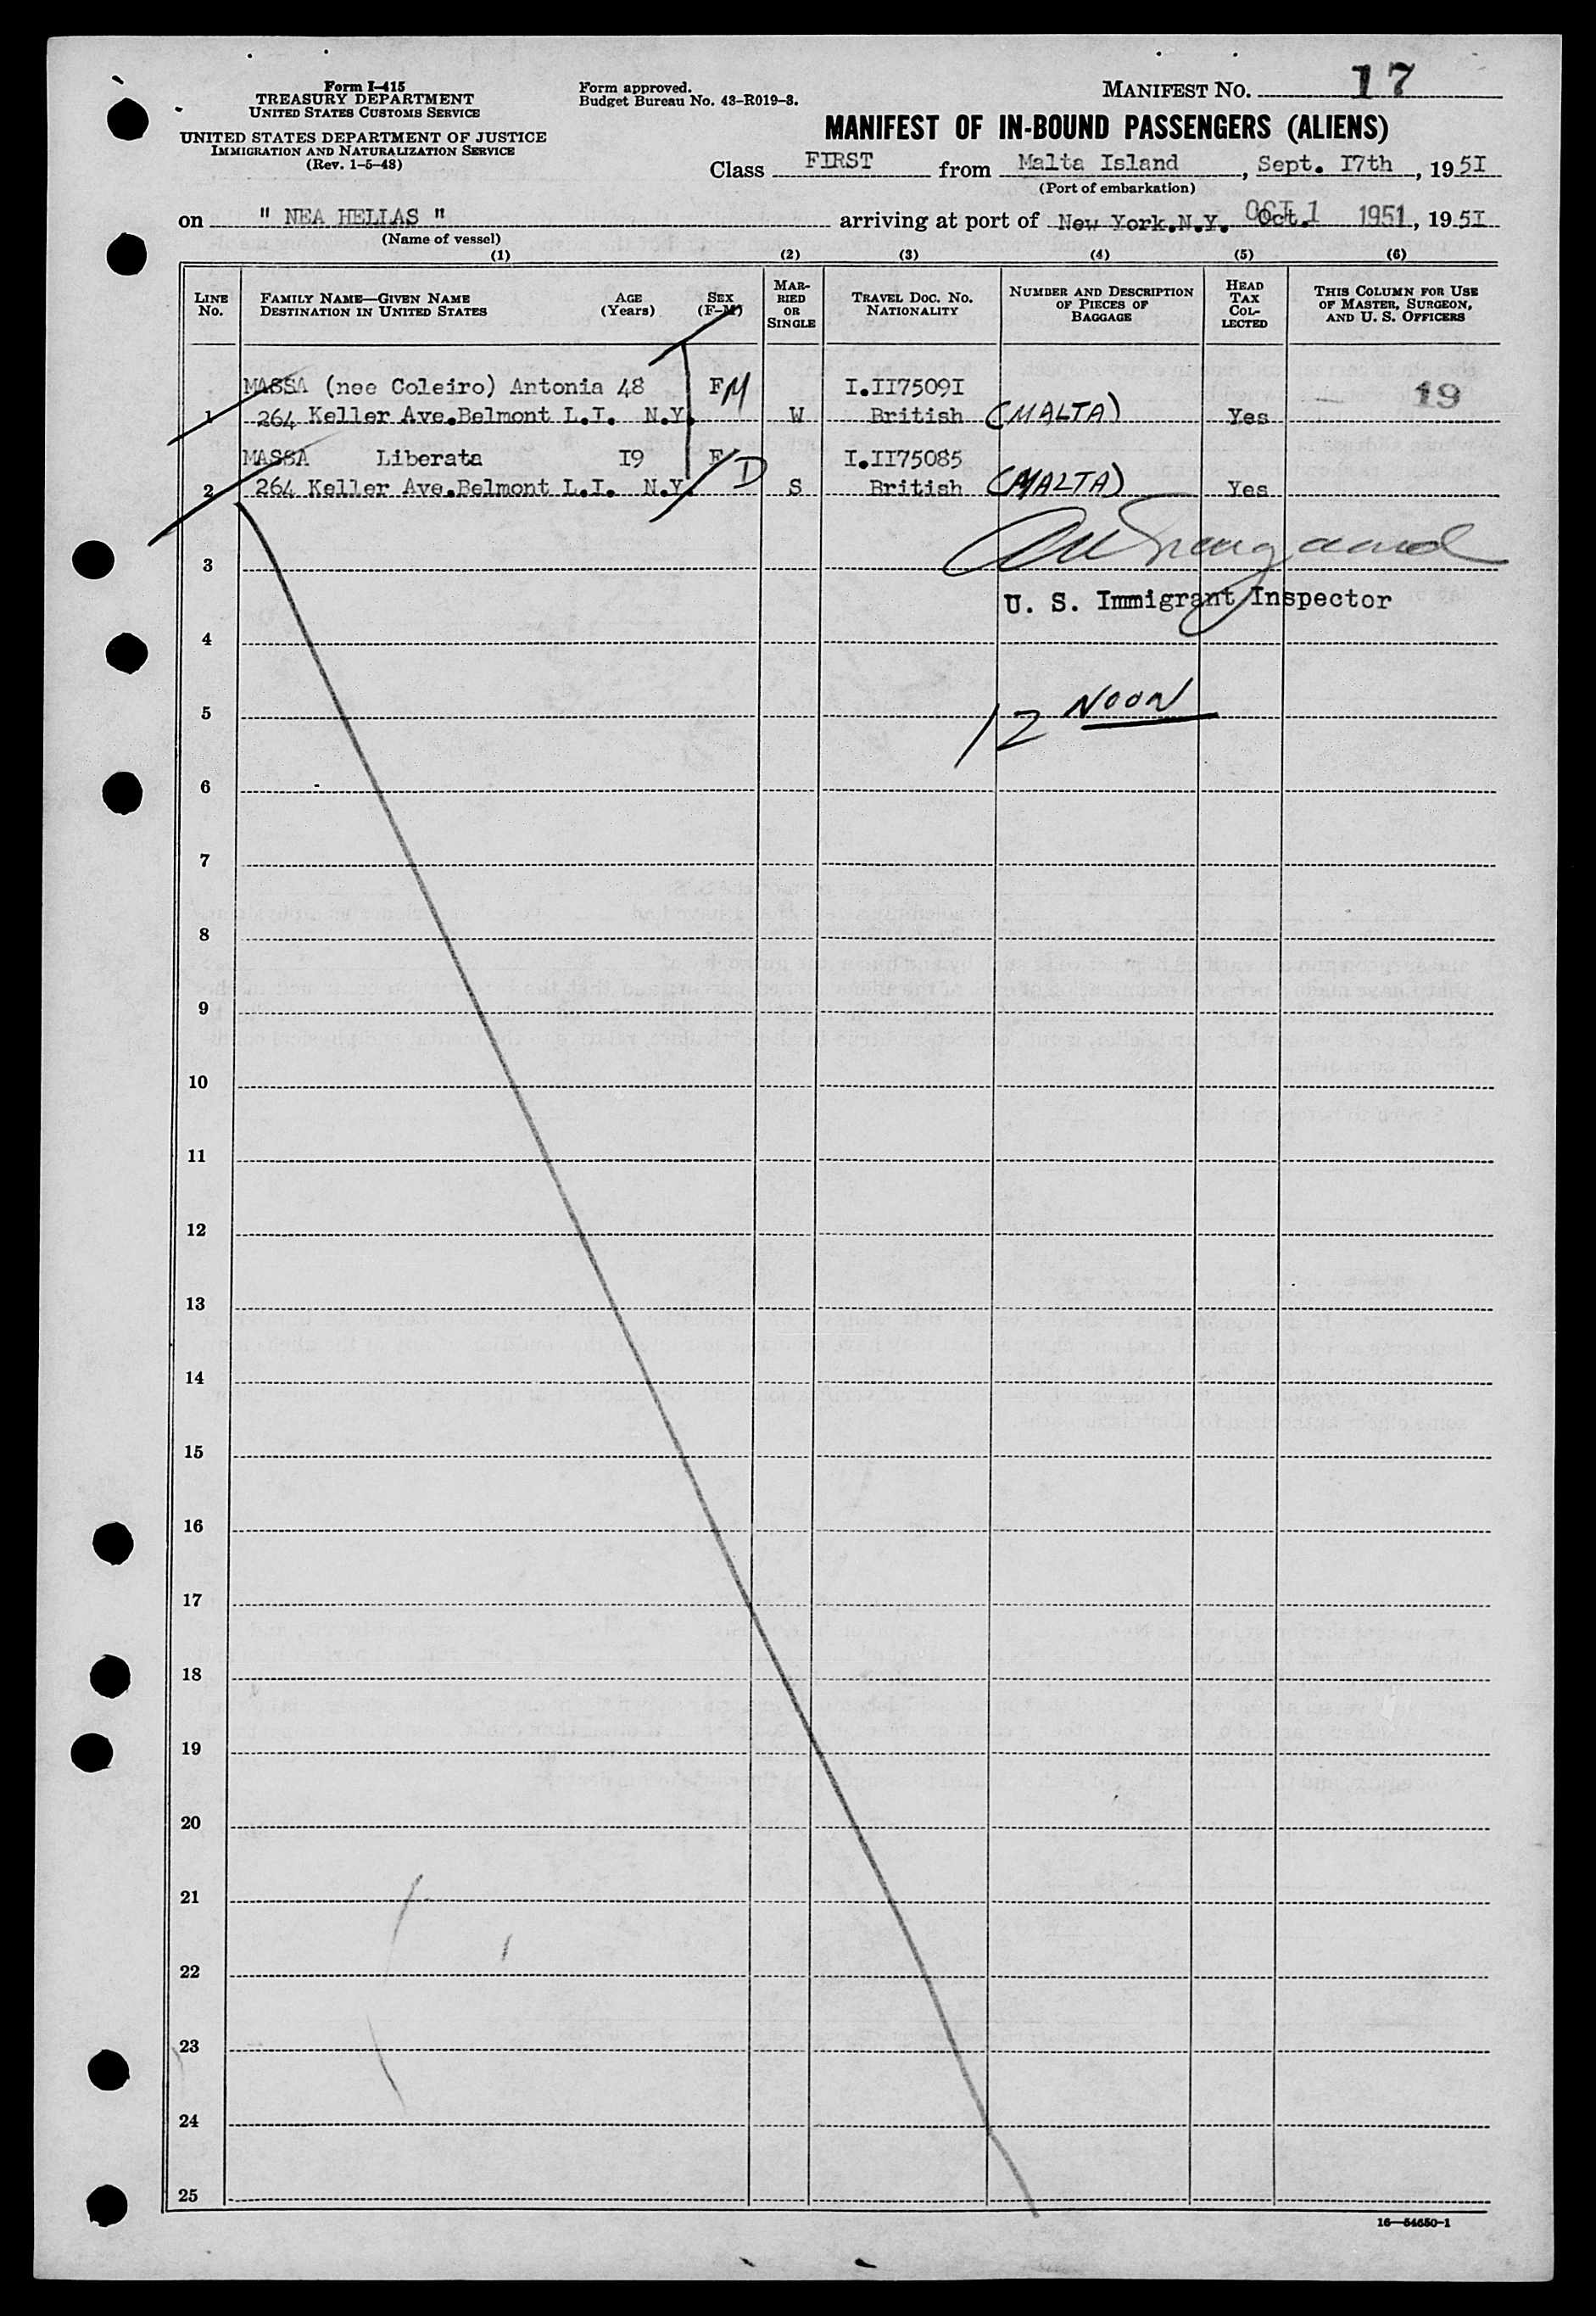 Form I-415
TREASURY DEPARTMENT
UNITED STATES CUSTOMS SERVICE
UNITED STATES DEPARTMENT OF JUSTICE
IMMIGRATION AND NATURALIZATION SERVICE
(Rev. 1-5-48)
Form approved.
Budget Bureau No. 43-R019-3.
MANIFEST No. 17
MANIFEST OF IN-BOUND PASSENGERS (ALIENS)
Class FIRST from Malta Island, Sept. I7th, 195I
(Port of embarkation)
on " NEA HELLAS " arriving at port of New York.N.Y. Oct. OCT 1 1951, 195I
(Name of vessel)
(1) (2) (3) (4) (5) (6)
LINE No. FAMILY NAME—GIVEN NAME DESTINATION IN UNITED STATES AGE (Years) SEX (F-M) MARRIED OR SINGLE TRAVEL DOC. No. NATIONALITY NUMBER AND DESCRIPTION OF PIECES OF BAGGAGE HEAD TAX COLLECTED THIS COLUMN FOR USE OF MASTER, SURGEON, AND U. S. OFFICERS
MASSA (nee Coleiro) Antonia 48 F M I.II7509I 19
1 264 Keller Ave.Belmont L.I. N.Y. W British (MALTA) Yes
MASSA Liberata I9 F D I.II75085
2 264 Keller Ave.Belmont L.I. N.Y. S British (MALTA) Yes
3
U. S. Immigrant Inspector
4
5 12 NOON
6
7
8
9
10
11
12
13
14
15
16
17
18
19
20
21
22
23
24
25
16—54650-1